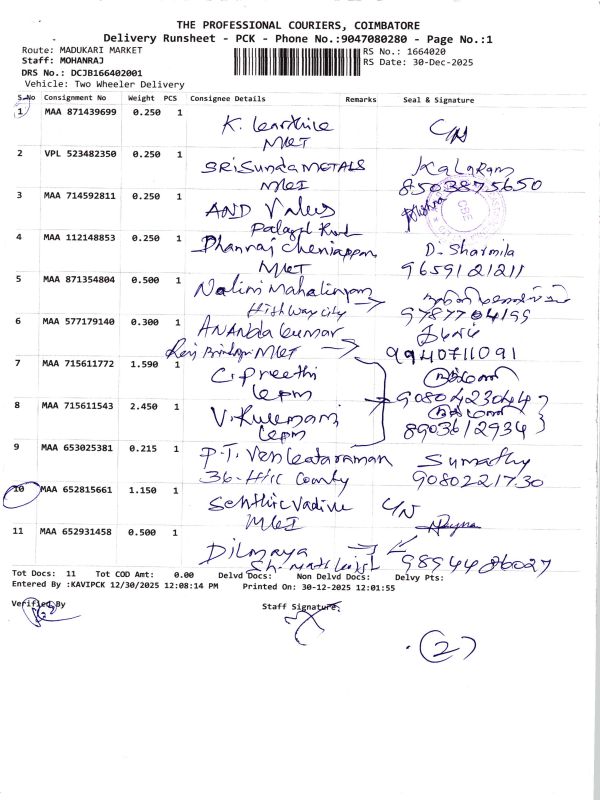 THE PROFESSIONAL COURIERS, COIMBATORE
Delivery Runsheet - PCK - Phone No.:9047080280 - Page No.:1
Route: MADUKARI MARKET
RS No.: 1664020
Staff: MOHANRAJ
RS Date: 30-Dec-2025
DRS No.: DCJB166402001
Vehicle: Two Wheeler Delivery
S.No Consignment No Weight PCS Consignee Details Remarks Seal & Signature
1 MAA 871439699 0.250 1
K. MKT C/N
2 VPL 523482350 0.250 1
SRI Sunda METALS Kalaram
MKT 8503875650
3 MAA 714592811 0.250 1
AND Values Krishna
Road
4 MAA 112148853 0.250 1
Dhanraj D. Sharmila
MKT 9659121211
5 MAA 871354804 0.500 1
Nalini Mahalingam
High Way city 9787704199
6 MAA 577179140 0.300 1
ANANDa kumar
MKT 9940711091
7 MAA 715611772 1.590 1
C. Preethi
9080423044
8 MAA 715611543 2.450 1
V.
8903612934
9 MAA 653025381 0.215 1
P.T. Venkataraman Sumathy
36- County 9080221730
10 MAA 652815661 1.150 1
Senthil Vadive C/N
MKT
11 MAA 652931458 0.500 1
Dilmaya
9894486027
Tot Docs: 11 Tot COD Amt: 0.00 Delvd Docs: Non Delvd Docs: Delvy Pts:
Entered By :KAVIPCK 12/30/2025 12:08:14 PM Printed On: 30-12-2025 12:01:55
Verified By Staff Signature:
(2)